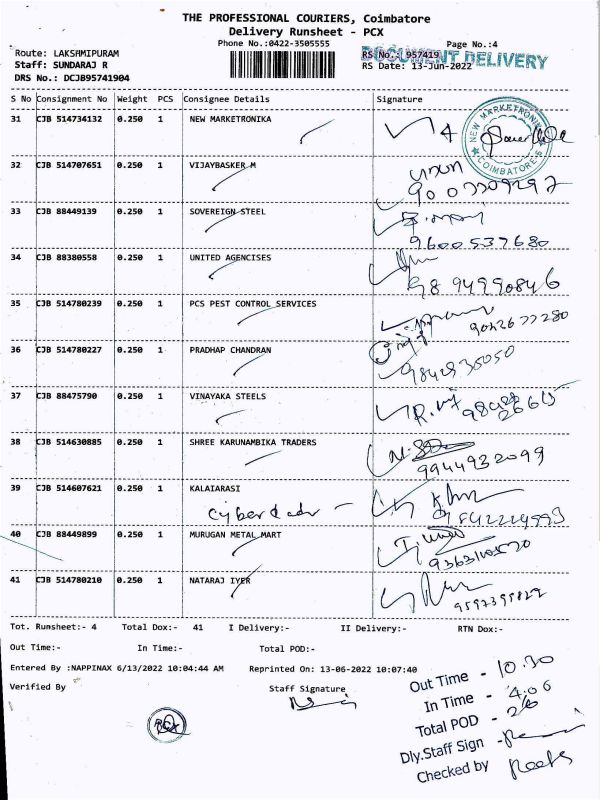 THE PROFESSIONAL COURIERS, Coimbatore
Delivery Runsheet - PCX
Phone No.:0422-3505555
Page No.:4
Route: LAKSHMIPURAM
RS No.: 957419
DOCUMENT DELIVERY
Staff: SUNDARAJ R
RS Date: 13-Jun-2022
DRS No.: DCJB95741904
S No Consignment No Weight PCS Consignee Details Signature
31 CJB 514734132 0.250 1 NEW MARKETRONIKA
NEW MARKETRONIKA COIMBATORE-6
32 CJB 514707651 0.250 1 VIJAYBASKER M
9003309297
33 CJB 88449139 0.250 1 SOVEREIGN STEEL
9600537680
34 CJB 88380558 0.250 1 UNITED AGENCISES
9894990846
35 CJB 514780239 0.250 1 PCS PEST CONTROL SERVICES
9042677280
36 CJB 514780227 0.250 1 PRADHAP CHANDRAN
9842935050
37 CJB 88475790 0.250 1 VINAYAKA STEELS
38 CJB 514630885 0.250 1 SHREE KARUNAMBIKA TRADERS
9944932099
39 CJB 514607621 0.250 1 KALAIARASI
40 CJB 88449899 0.250 1 MURUGAN METAL MART
41 CJB 514780210 0.250 1 NATARAJ IYER
Tot. Runsheet:- 4 Total Dox:- 41 I Delivery:- II Delivery:- RTN Dox:-
Out Time:- In Time:- Total POD:-
Entered By :NAPPINAX 6/13/2022 10:04:44 AM Reprinted On: 13-06-2022 10:07:40
Verified By Staff Signature
PCX
Out Time - 10.30
In Time - 4.06
Total POD - 26
Dly.Staff Sign -
Checked by